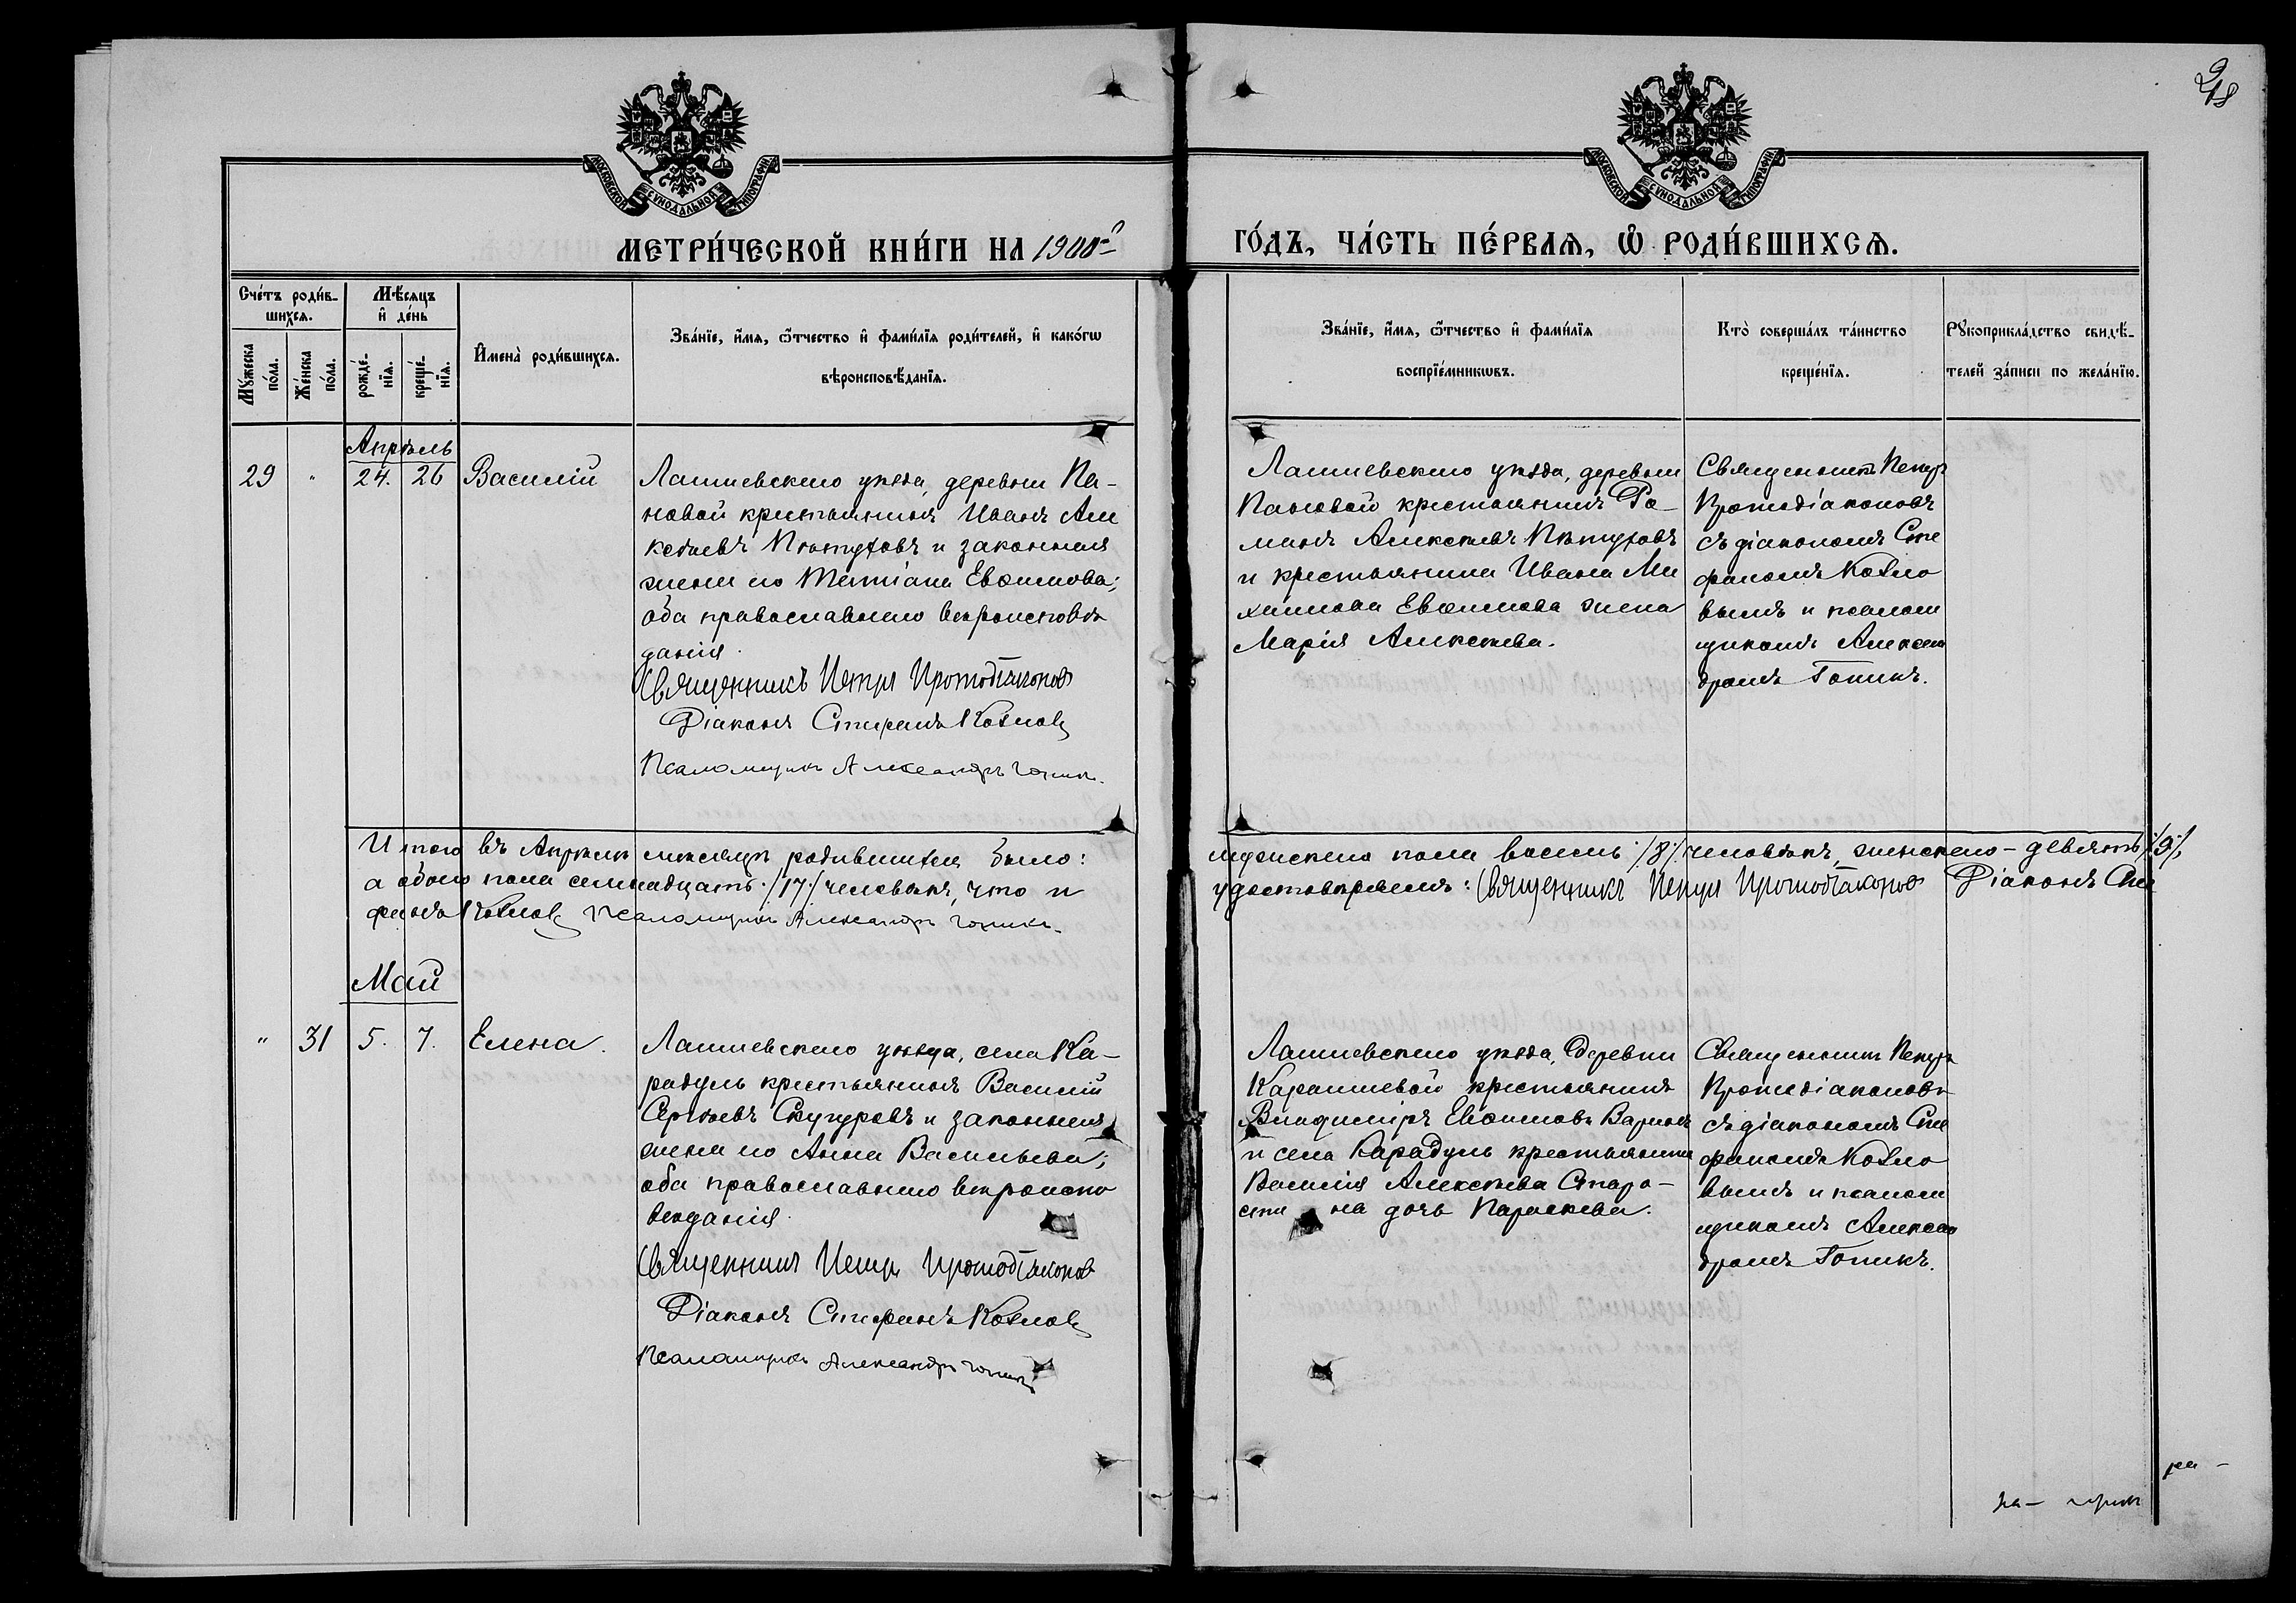 218
МОСКОВСКОЙ СѴНОДАЛЬНОЙ ТИПОГРАФІИ
МОСКОВСКОЙ СѴНОДАЛЬНОЙ ТИПОГРАФІИ
МЕТРИ́ЧЕСКОЙ КНИ́ГИ НА 1900й
ГО́ДЪ, ЧА́СТЬ ПЕ́РВАѦ, Ѽ РОДИ́ВШИХСѦ.
Сче́тъ роди́в-
шихсѧ.
Мꙋ́жеска
по́ла.
Же́нска
по́ла.
Мѣ́сѧцъ
и҆ де́нь
рожде́-
нїѧ.
креще́-
нїѧ.
И҆мена̀ роди́вшихсѧ.
Зва́нїе, и҆́мѧ, ѻ҆́тчество и҆ фами́лїѧ роди́телей, и҆ како́гѡ
вѣроисповѣ́данїѧ.
Зва́нїе, и҆́мѧ, ѻ҆́тчество и҆ фами́лїѧ
воспрїе́мникѡвъ.
Кто̀ соверша́лъ та́инство
креще́нїѧ.
Рꙋкоприкла́дство свидѣ́-
телей за́писи по жела́нїю.
Апрѣль
29 " 24. 26 Василій
Лаишевскаго уѣзда, деревни Па-
новой крестьянинъ Иванъ Але
ксѣевъ Пѣтуховъ и законная
жена его Татіана Евѳимова;
оба православнаго вѣроисповѣ
данія.
Священникъ Петръ Протодіаконовъ
Діаконъ Стефанъ Козловъ
Псаломщикъ Александръ Гопикъ.
Лаишевскаго уѣзда, деревни
Пановой крестьянинъ Ро-
манъ Алексѣевъ Пѣтуховъ
и крестьянина Ивана Ми
хаилова Евѳимова жена
Марія Алексѣева.
Священникъ Петръ
Протодіаконовъ
съ діакономъ Сте
фаномъ Козло
вымъ и псалом
щикомъ Алексан
дромъ Гопикъ.
Итого въ Апрѣлѣ мѣсяцѣ родившихся было: мужескаго пола восемь /8/ человѣкъ, женскаго - девять /9/,
а обоего пола семнадцать /17/ человѣкъ, что и удостовѣряемъ: Священникъ Петръ Протодіаконовъ Діаконъ Сте
фанъ Козловъ Псаломщикъ Александръ Гопикъ.
Май
" 31 5. 7. Елена.
Лаишевскаго уѣзда, села Ка-
радуль крестьянинъ Василій
Сергѣевъ Снугуровъ и законная
жена его Анна Васильева;
оба православнаго вѣроиспо
вѣданія.
Священникъ Петръ Протодіаконовъ
Діаконъ Стефанъ Козловъ
Псаломщикъ Александръ Гопикъ
Лаишевскаго уѣзда, деревни
Караишевой крестьянинъ
Владиміръ Евѳимовъ
и села Карадуль крестьянина
Василія Алексѣева Старо-
сти на дочь Параскева.
Священникъ Петръ
Протодіаконовъ
съ діакономъ Сте
фаномъ Козло
вымъ и псалом
щикомъ Алексан
дромъ Гопикъ.